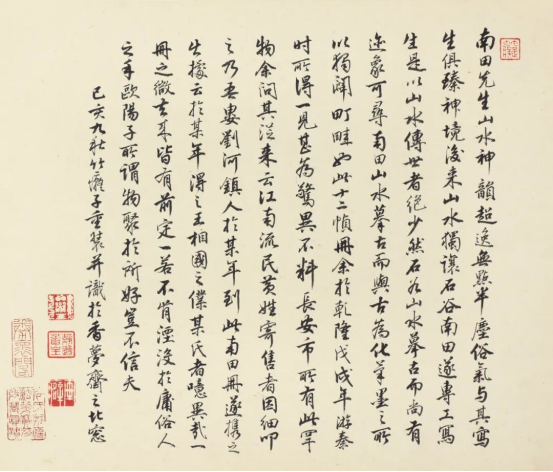 南田先生山水神韻超逸無點半塵俗氣與其寫
生俱臻神境後來山水獨讓石谷南田遂專工寫
生是以山水傳世者絕少然石谷山水摹古而尚有
迹象可尋南田山水摹古而與古為化筆墨之所
以獨闢町畦也此十二幀冊余於乾隆戊戌年游秦
時所得一見甚為驚異不料長安市所有此罕
物余問其從來云江南流民黃姓寄售者因細叩
之乃吾婁劉河鎮人於某年到此南田冊遂攜之
出據云於某年得之王相國之僕某氏者噫異哉一
冊之微去來皆有前定一若不肯湮沒於庸俗人
之手歐陽子所謂物聚於所好豈不信夫
己亥九秋竹癡子重裝并識於香夢齋之北窓